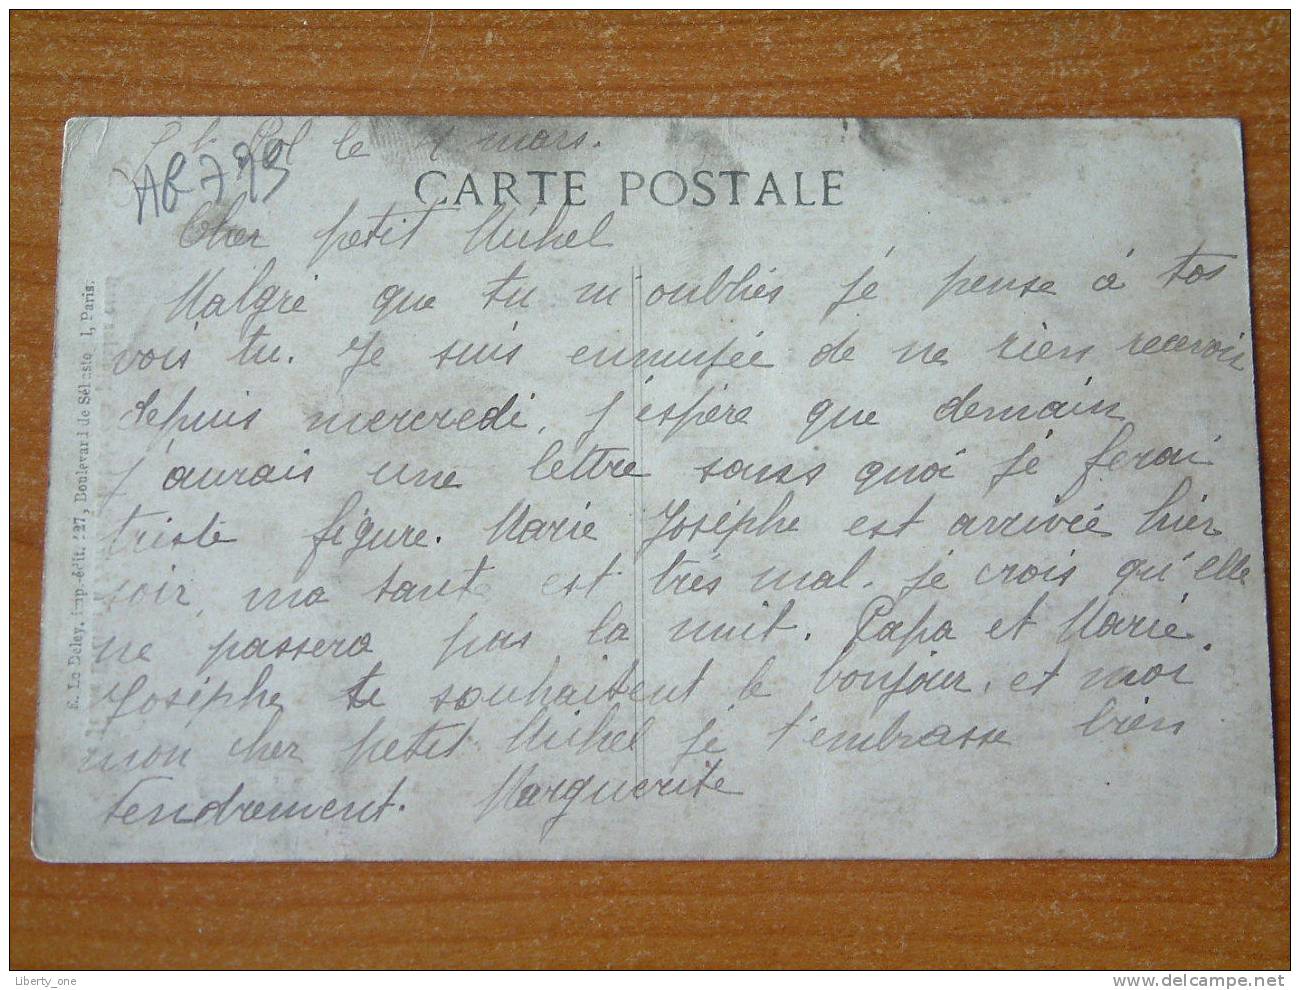 Pol le 4 mars.
AB 793
CARTE POSTALE
Cher petit Michel
Malgré que tu m'oublies je pense à toi
vois tu. Je suis ennuyée de ne rien recevoir
depuis mercredi, j'espère que demain
j'aurais une lettre sans quoi je ferai
triste figure. Marie Josèphe est arrivée hier
soir, ma tante est très mal. je crois qu'elle
ne passera pas la nuit. Papa et Marie
Josèphe te souhaitent le bonjour. et moi
mon cher petit Michel je t'embrasse bien
tendrement. Marguerite
E. Le Deley, imp.-édit. 127, Boulevard de Sébasto l, Paris.
Liberty_one
www.delcampe.net